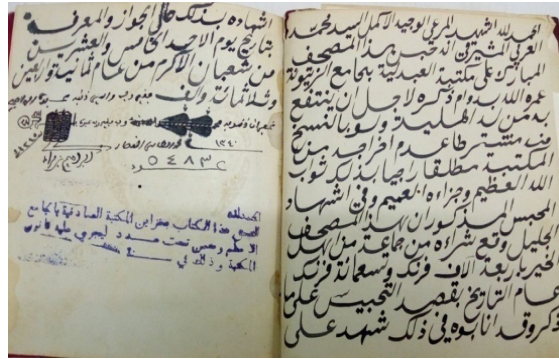 الحمد لله اشهد المرعي الوجيه الاكمل السيد محمد
العربي المثيرني انه حبس هذا المصحف
المبارك على مكتبة العبدلية بجامع الزيتونة
عمره الله بدوام ذكره لاجل ان ينتفع
به من له اهلية ولو بالنسخ
منه مشترطا عدم اخراجه من
المكتبة مطلقا راجيا بذلك ثواب
الله العظيم وجزاءه العميم وفي اشهاد
المحبس المذكور ان هذا المصحف
الجليل وقع شراءه من جماعة من اهل
الخير باربعة آلاف فرنك وسبعمائة فرنك
عام التاريخ بقصد التحبيس على ما
ذكر وقد انابوه في ذلك شهد على
اشهاده بذلك حالي الجواز والمعرفة
بتاريخ يوم الاحد الخامس والعشرين
من شعبان الاكرم من عام ثمانية واربعين
وثلاثمائة والف
١٣٤٠
٥٤٨٣
الحمد لله
هذا الكتاب بخزاين المكتبة الصادقية بالجامع
الاعظم تحت عدد ليجري عليه قانون
المكتبة وذلك في سنة